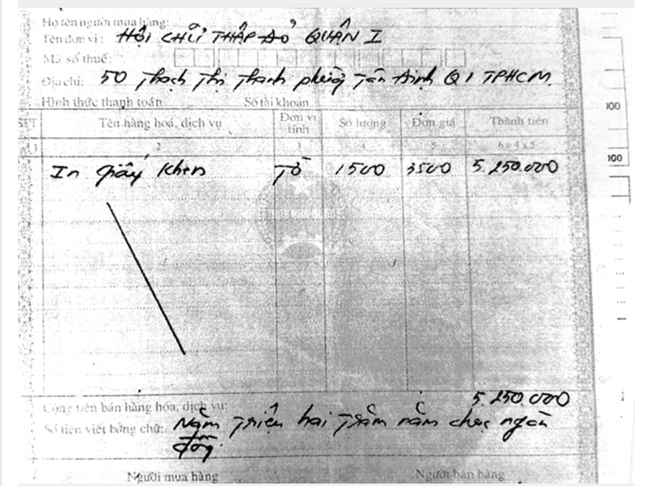 Họ tên người mua hàng:
Tên đơn vị: HỘI CHỮ THẬP ĐỎ QUẬN I
Mã số thuế:
Địa chỉ: 50 Thạch Thị Thanh phường Tân Định Q1 TPHCM
Hình thức thanh toán Số tài khoản
STT Tên hàng hoá, dịch vụ Đơn vị tính Số lượng Đơn giá Thành tiền
1 2 3 4 5 6=4x5
In giấy khen Tờ 1500 3500 5.250.000
000
000
Cộng tiền bán hàng hóa, dịch vụ: 5.250.000
Số tiền viết bằng chữ: Năm triệu hai trăm năm chục ngàn
đồng
Người mua hàng Người bán hàng